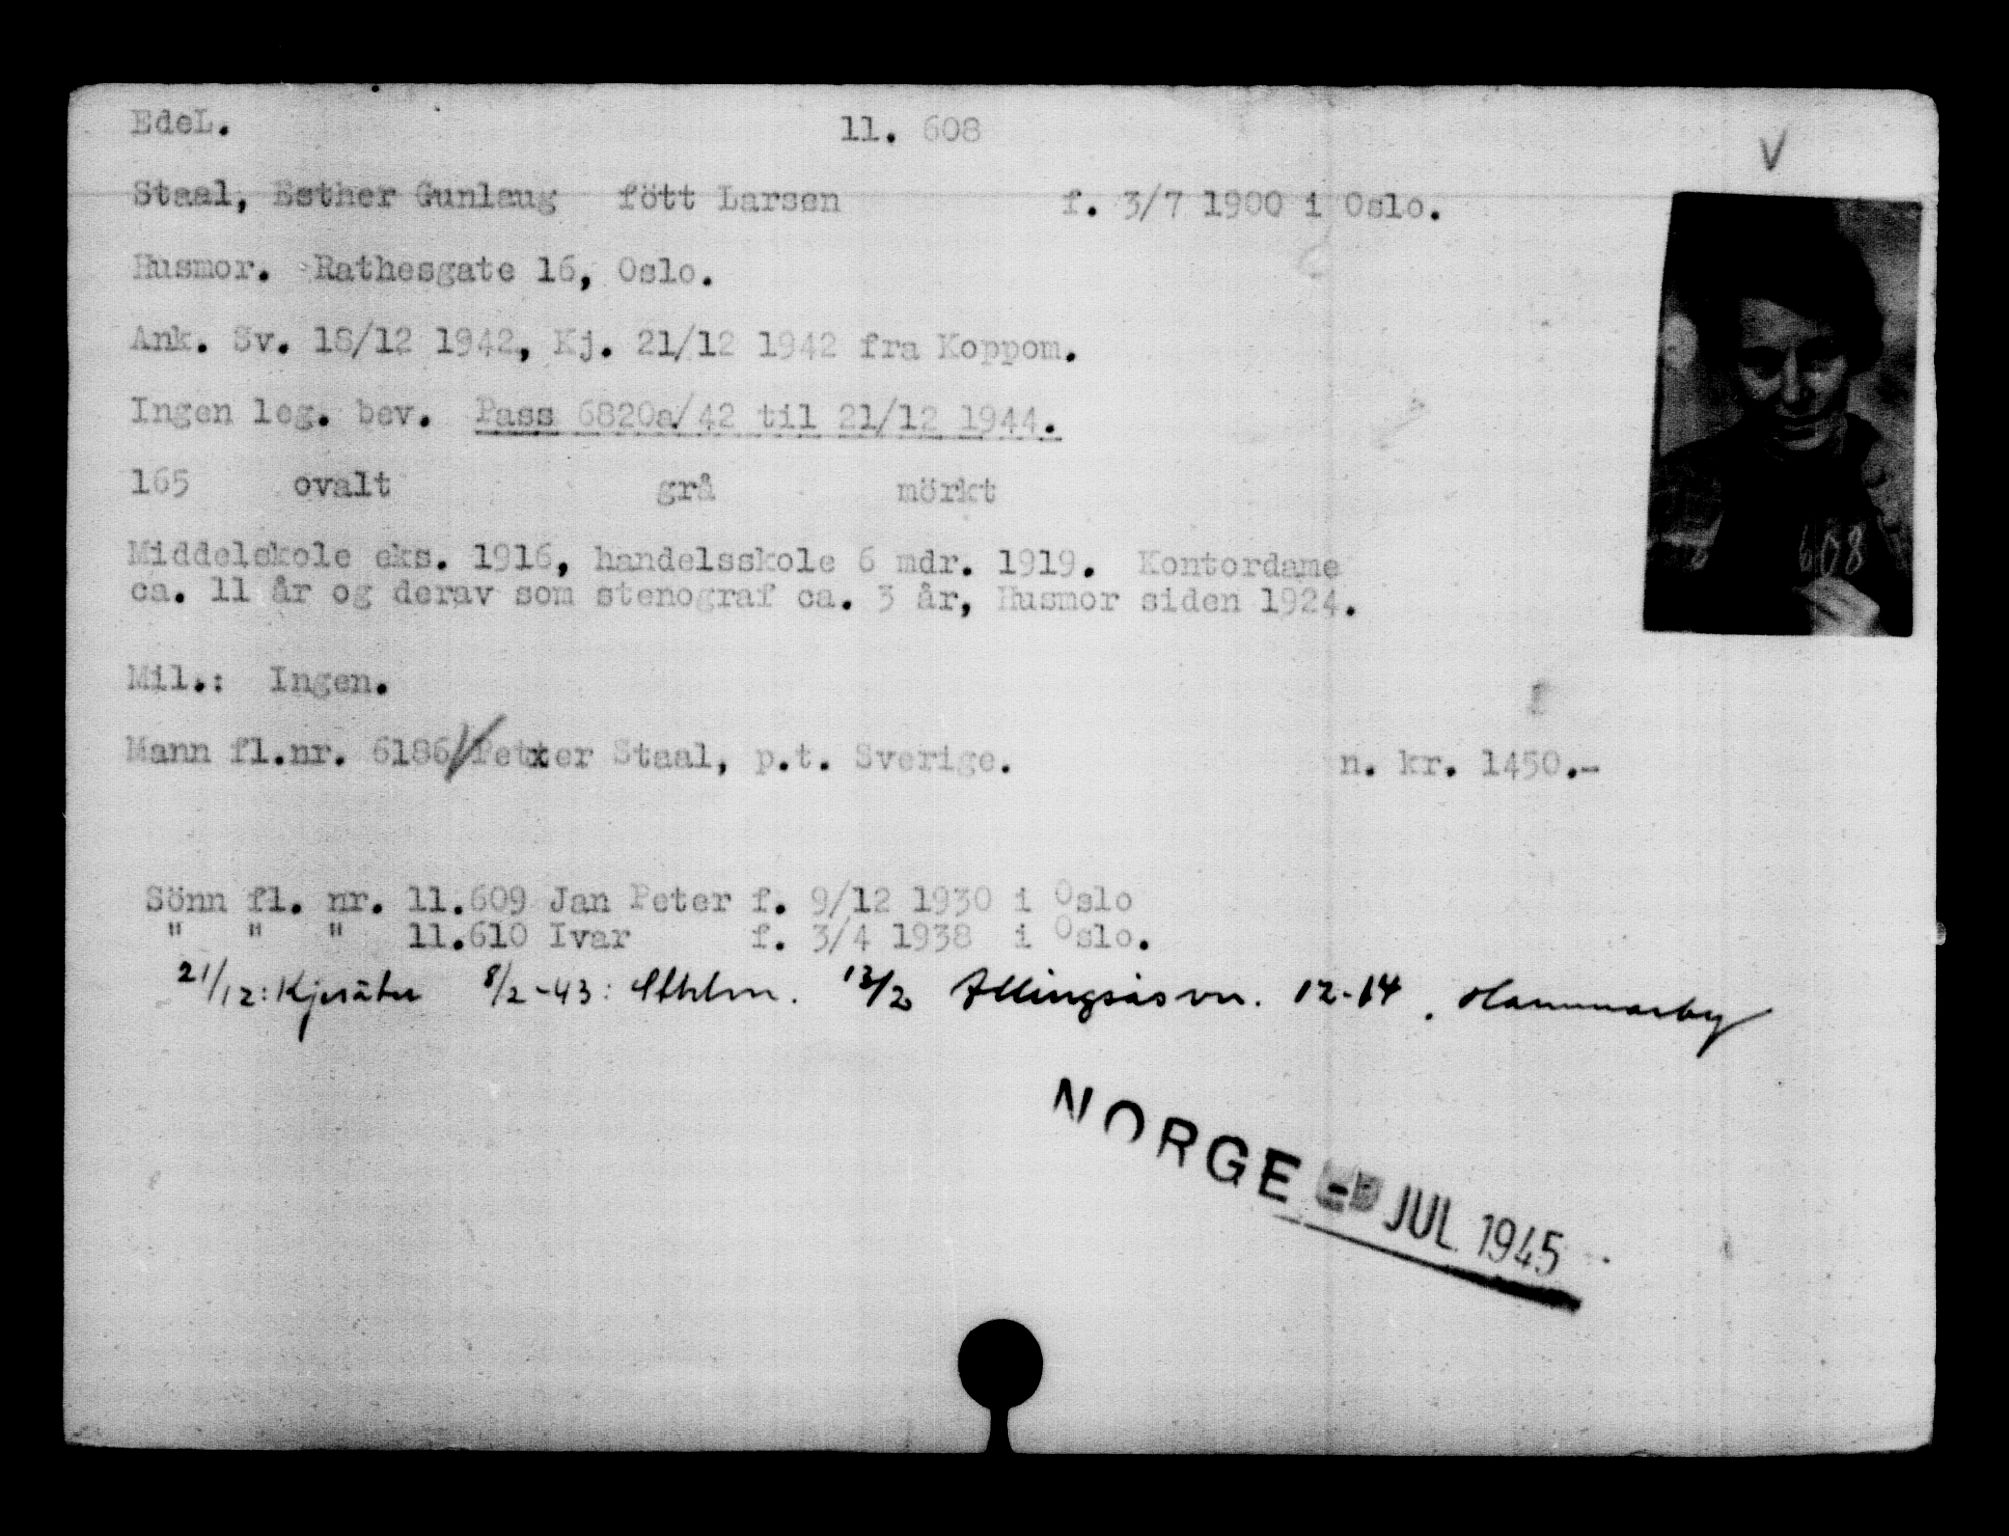 EdeL. 11. 608
V
Staal, Esther Gunlaug fött Larsen f. 3/7 1900 i Oslo.
Husmor. Rathesgate 16, Oslo.
Ank. Sv. 18/12 1942, Kj. 21/12 1942 fra Koppom.
Ingen leg. bev. Pass 6820a/42 til 21/12 1944.
165 ovalt grå mörkt
608
Middelskole eks. 1916, handelsskole 6 mdr. 1919. Kontordame
ca. 11 år og derav som stenograf ca. 3 år, Husmor siden 1924.
Mil.: Ingen.
Mann fl.nr. 6186 Petxer Staal, p.t. Sverige. n. kr. 1450.-
Sönn fl. nr. 11.609 Jan Peter f. 9/12 1930 i Oslo
" " " 11.610 Ivar f. 3/4 1938 i Oslo.
21/12: Kjesäter 8/2-43: Sthlm. 13/2 Allingsåsvn. 12-14. Hammarby
NORGE JUL 1945